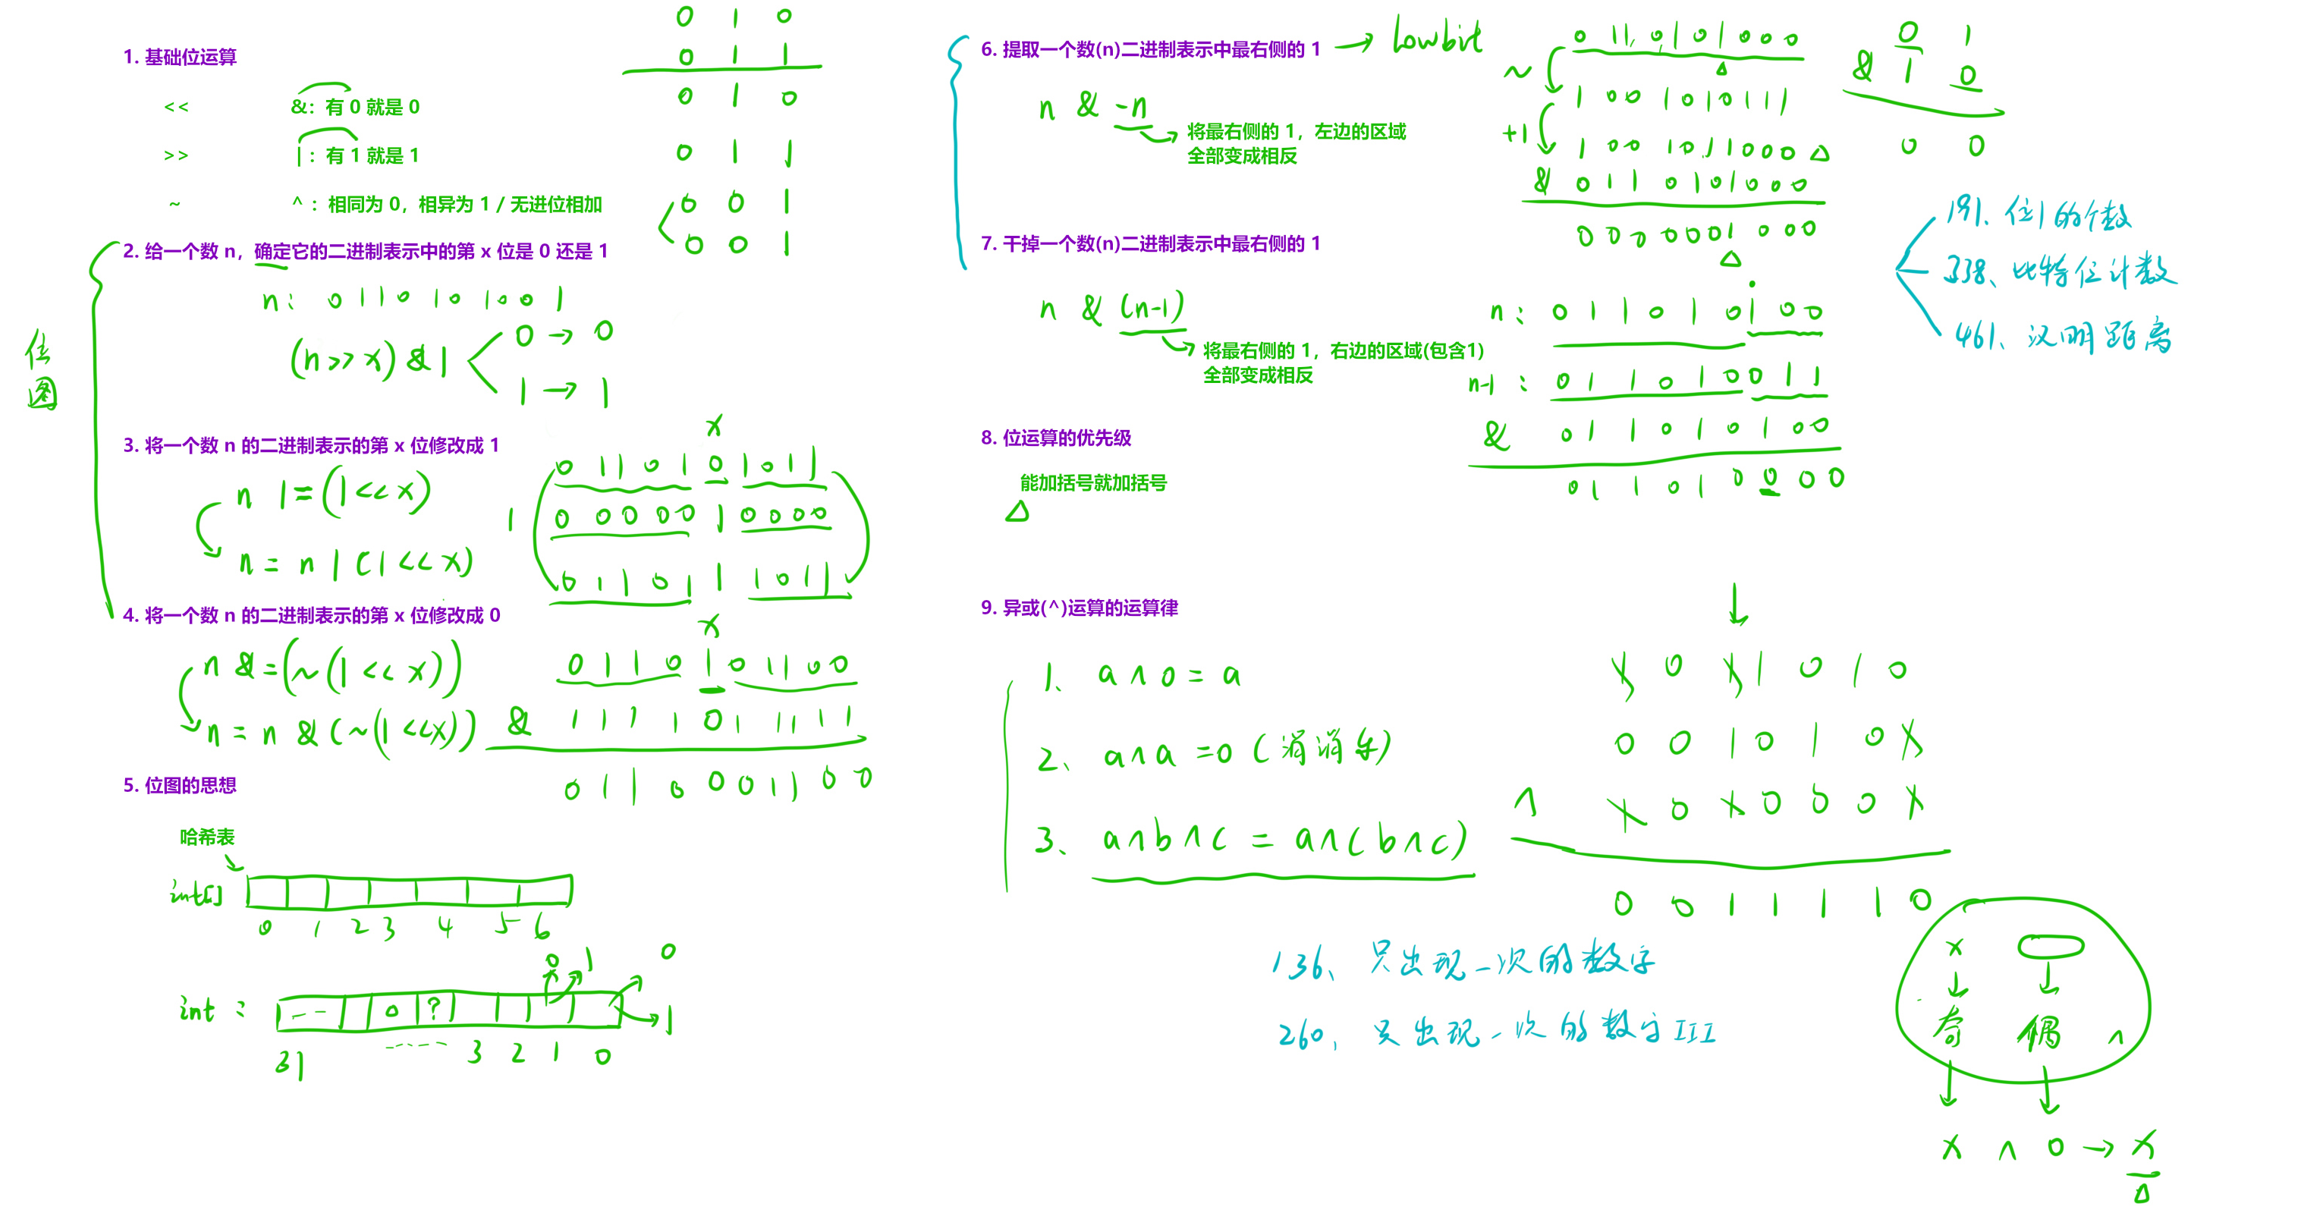 1. 基础位运算
<<
&: 有 0 就是 0
>>
|: 有 1 就是 1
~
^: 相同为 0，相异为 1 / 无进位相加
0 1 0
0 1 1
0 1 0
0 1 1
0 0 1
0 0 1
位图
2. 给一个数 n，确定它的二进制表示中的第 x 位是 0 还是 1
n: 0 1 1 0 1 0 1 0 0 1
(n >> x) & 1
0 → 0
1 → 1
3. 将一个数 n 的二进制表示的第 x 位修改成 1
n |= (1 << x)
n = n | (1 << x)
x
0 1 1 0 1 0 1 0 1 1
| 0 0 0 0 0 1 0 0 0 0
0 1 1 0 1 1 1 0 1 1
4. 将一个数 n 的二进制表示的第 x 位修改成 0
n &= (~(1 << x))
n = n & (~(1 << x))
x
0 1 1 0 1 0 1 1 0 0
& 1 1 1 1 0 1 1 1 1 1
0 1 1 0 0 0 1 1 0 0
5. 位图的思想
哈希表
int[]
0 1 2 3 4 5 6
0 1 0
int :
0 ?
1
31 3 2 1 0
6. 提取一个数(n)二进制表示中最右侧的 1 → lowbit
n & -n
将最右侧的 1，左边的区域
全部变成相反
0 1 1 0 1 0 1 0 0 0
~
1 0 0 1 0 1 0 1 1 1
+1
1 0 0 1 0 1 1 0 0 0
& 0 1 1 0 1 0 1 0 0 0
0 0 0 0 0 0 1 0 0 0
0 1
& 1 0
0 0
191、位1的个数
338、比特位计数
461、汉明距离
7. 干掉一个数(n)二进制表示中最右侧的 1
n & (n-1)
将最右侧的 1，右边的区域(包含1)
全部变成相反
n : 0 1 1 0 1 0 1 0 0
n-1 : 0 1 1 0 1 0 0 1 1
& 0 1 1 0 1 0 1 0 0
0 1 1 0 1 0 0 0 0
8. 位运算的优先级
能加括号就加括号
9. 异或(^)运算的运算律
1、a ^ 0 = a
2、a ^ a = 0 (消消乐)
3、a ^ b ^ c = a ^ (b ^ c)
1 0 1 1 0 1 0
0 0 1 0 1 0 1
^ 1 0 1 0 0 0 1
0 0 1 1 1 1 0
136、只出现一次的数字
260、只出现一次的数字 III
x
奇 偶 ^
x ^ 0 → x